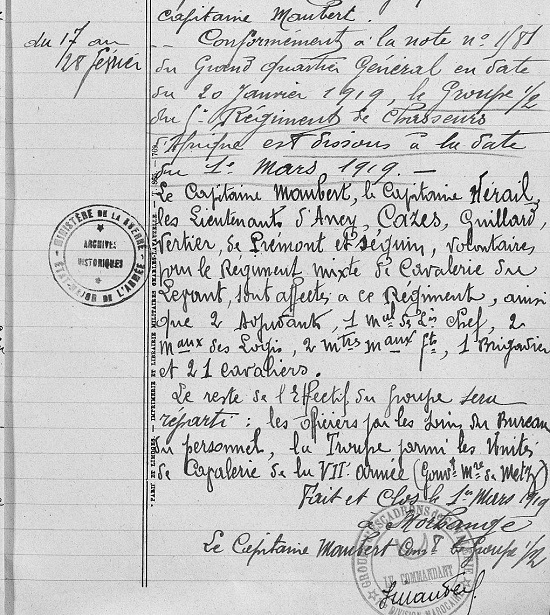 capitaine Maubert.
du 17 au
28 février
Conformément à la note n° 1/81
du Grand quartier Général en date
du 20 Janvier 1919, le Groupe 1/2
du Régiment de Chasseurs
d'Afrique est dissous à la date
du 1er Mars 1919. —
Le Capitaine Maubert, le Capitaine Hérail,
les Lieutenants d'Aney, Cazes, Guillard,
Pertier, de Prémont et Séguin, volontaires
pour le Régiment mixte de Cavalerie du
Levant, sont affectés à ce Régiment, ainsi
que 2 Adjudants, 1 mal des Lis Chef, 2
maux des Logis, 2 mtres maux fts, 1 Brigadier
et 21 cavaliers.
Le reste de l'Effectif du groupe sera
réparti : les officiers par les soins du Bureau
du personnel, la Troupe parmi les Unités
de Cavalerie de la VIIe armée (Gouvt Mre de Metz)
Fait et Clos le 1er Mars 1919
à Morhange
Le Capitaine Maubert Comt le Groupe 1/2
Maubert
MINISTÈRE DE LA GUERRE
ÉTAT-MAJOR DE L'ARMÉE
ARCHIVES
HISTORIQUES
PARIS ET LIMOGES. — IMPRIMERIE ET LIBRAIRIE MILITAIRES CHARLES-LAVAUZELLE
LE COMMANDANT
DIVISION MAROCAINE